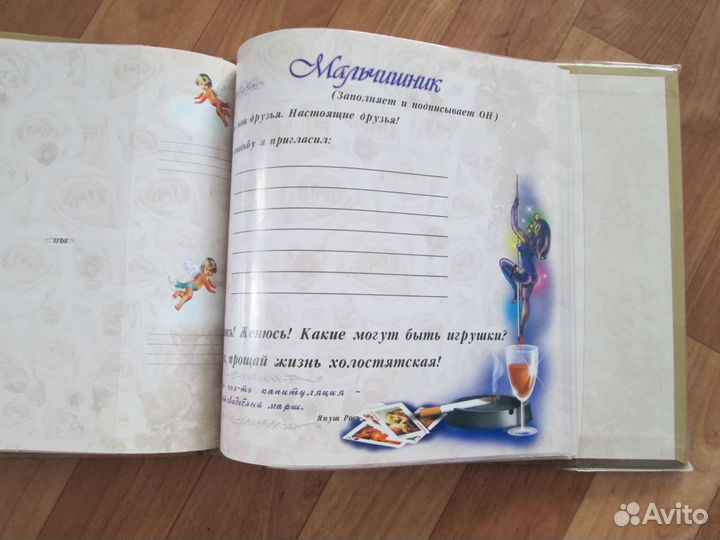 Мальчишник
(Заполняет и подписывает ОН)
друзья. Настоящие друзья!
я пригласил:
Женюсь! Какие могут быть игрушки?
прощай жизнь холостятская!
капитуляция -
марш.
Януш
Avito